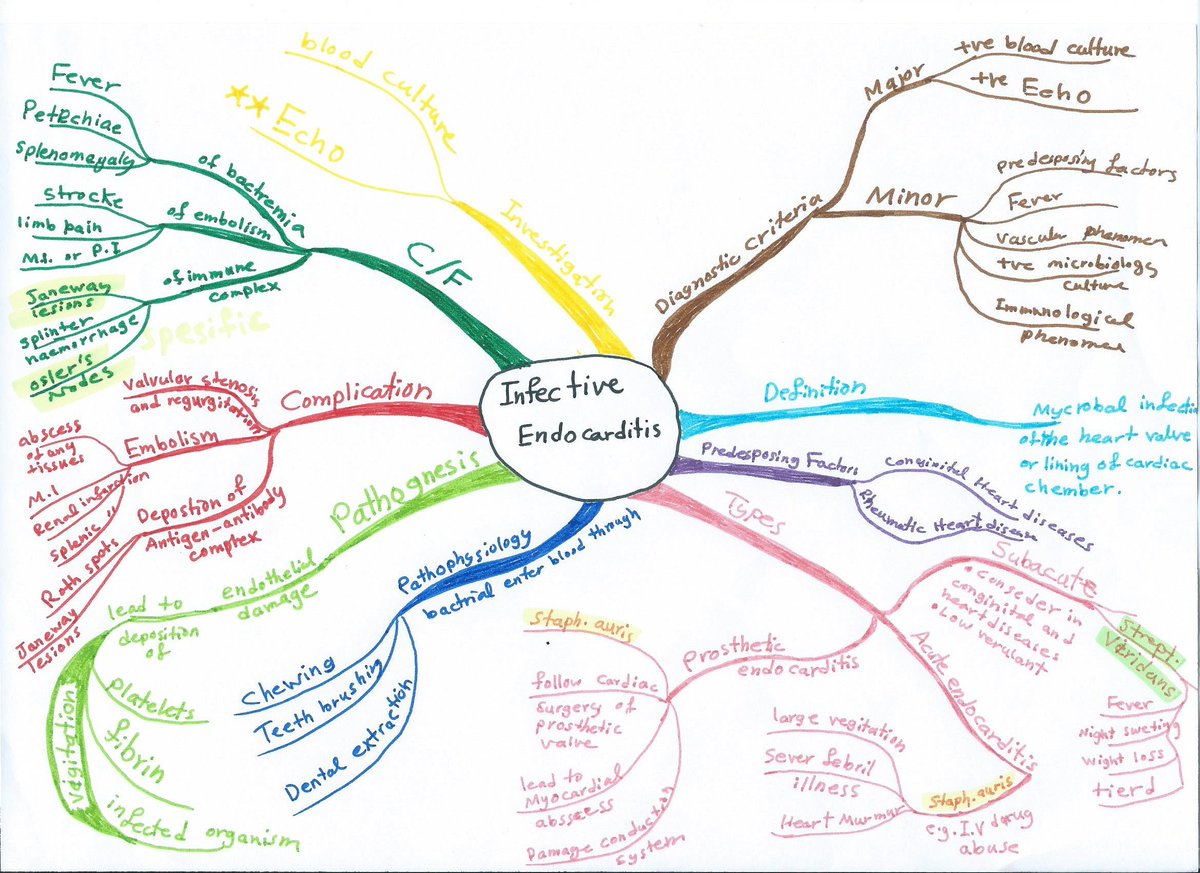 Infective
Endocarditis
Definition
Mycrobal infectio
of the heart valve
or lining of cardiac
chember.
Predesposing Factors
Conginital Heart diseases
Rheumatic Heart disease
Types
Subacute
• Conseder in
conginital and
heart diseases
• Low verulant
Strept.
Viridans
Fever
Night sweting
Wight loss
tierd
Acute endocarditis
Staph. auris
e.g. I.V drug
abuse
large vegitation
Sever febril
illness
Heart Murmur
Prosthetic
endocarditis
Staph. auris
follow Cardiac
Surgery of
prosthetic
valve
lead to
Myocardial
abscess
Damage conduction
system
Pathophysiology
bactrial enter blood through
Chewing
Teeth brushing
Dental extraction
Pathognesis
endothelial
damage
lead to
deposition
of
Vegitation
platelets
fibrin
infected organism
Complication
Valvular stenosis
and regurgitation
Embolism
abscess
of any
tissues
M.I
Renal infarction
splenic "
Depostion of
Antigen-antibody
complex
Roth spots
Janeway
lesions
C/F
of bactremia
Fever
Petechiae
Splenomegaly
of embolism
Strocke
limb pain
M.I. or P.I
of immune
complex
Janeway
lesions
splinter
haemorrhage
osler's
Nodes
spesific
Investigation
blood culture
Echo
Diagnostic Criteria
Major
+ve blood culture
+ve Echo
Minor
predesposing factors
Fever
vascular phenomen
+ve microbiology
culture
Immunological
phenomen